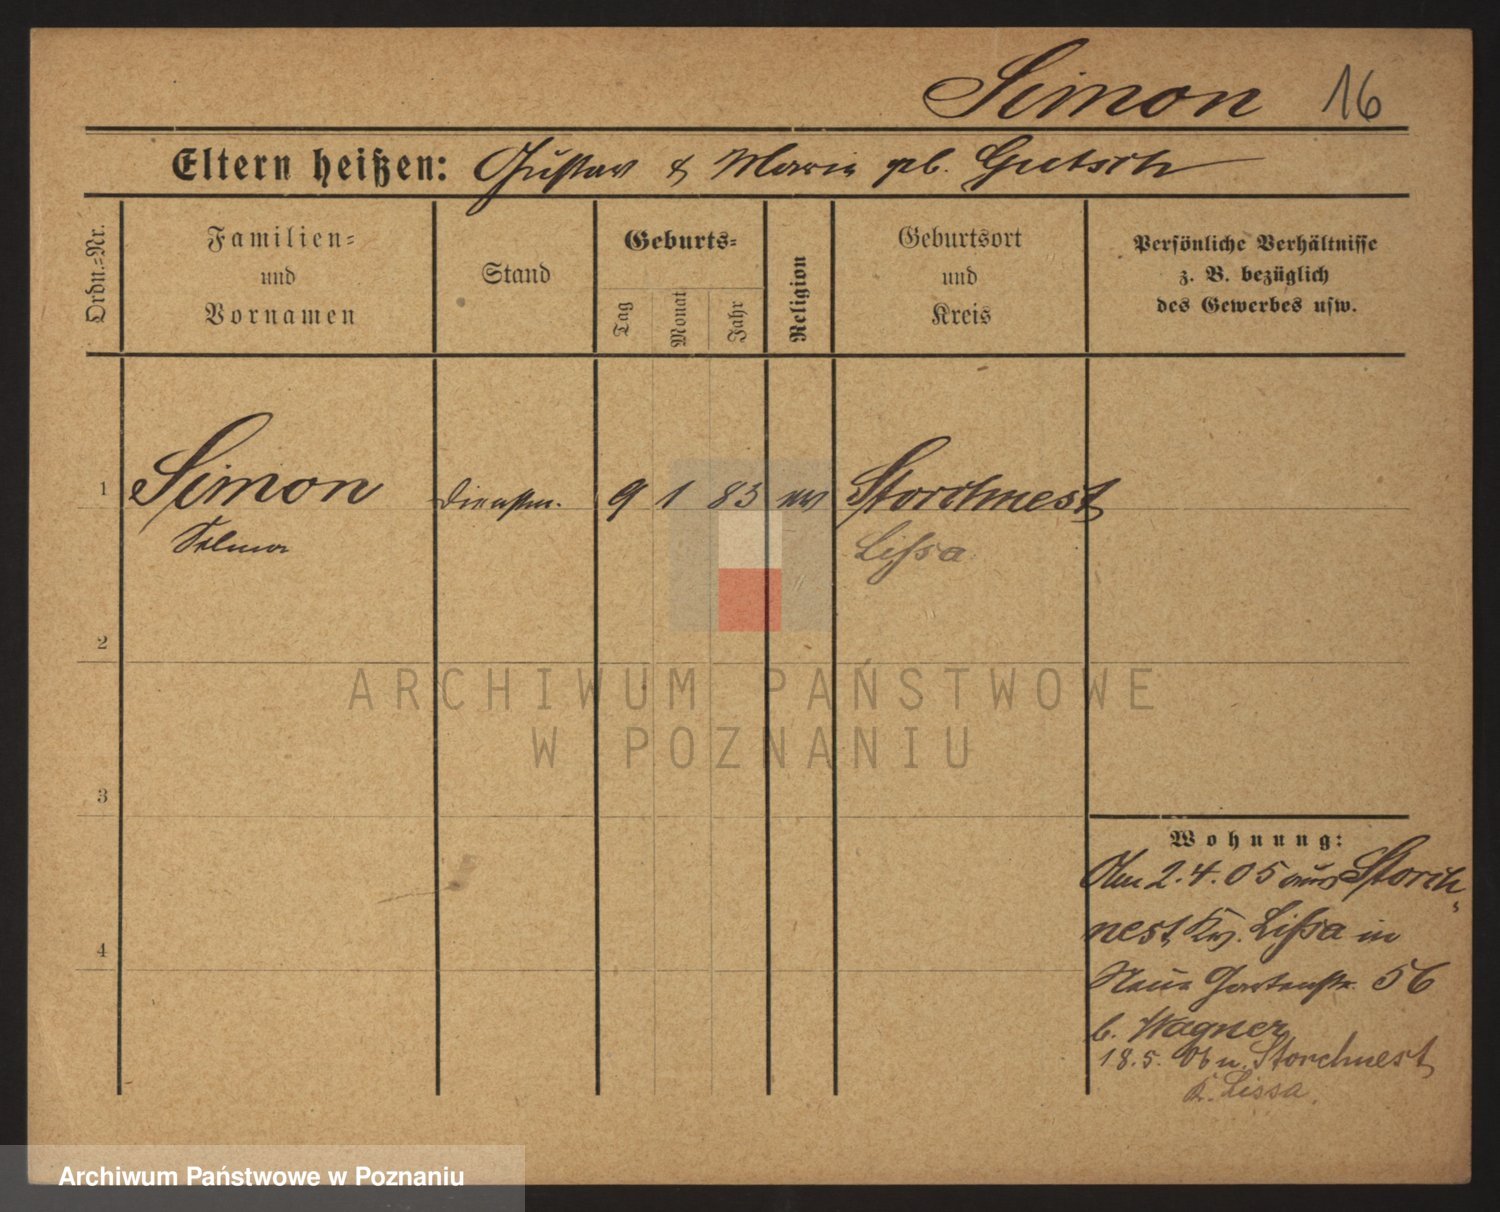 Simon 16
Eltern heißen: Gustav & Marie geb. Gutsch
Ordn.=Nr.
Familien=
und
Vornamen
Stand
Geburts=
Tag
Monat
Jahr
Religion
Geburtsort
und
Kreis
Persönliche Verhältnisse
z. B. bezüglich
des Gewerbes usw.
1 Simon Dienstm. 9 1 83 ev Storchnest
Selma Lissa
2
ARCHIWUM PAŃSTWOWE
W POZNANIU
3
Wohnung:
Am 2.4.05 aus Storch-
nest Kr. Lissa in
4
Neue Gartenstr. 56
b. Wagner
18.5. 06 n. Storchnest
K. Lissa.
Archiwum Państwowe w Poznaniu